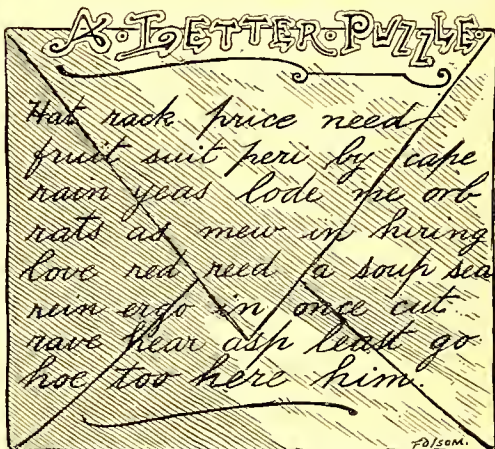 A·LETTER·PUZZLE·
Hat rack price need
fruit suit peri by cape
rain yeas lode me orb
rats as mew in hiring
love red reed a soup sea
rein ergo in once cut
rave hear asp least go
hoe too here him.
FOLSOM.